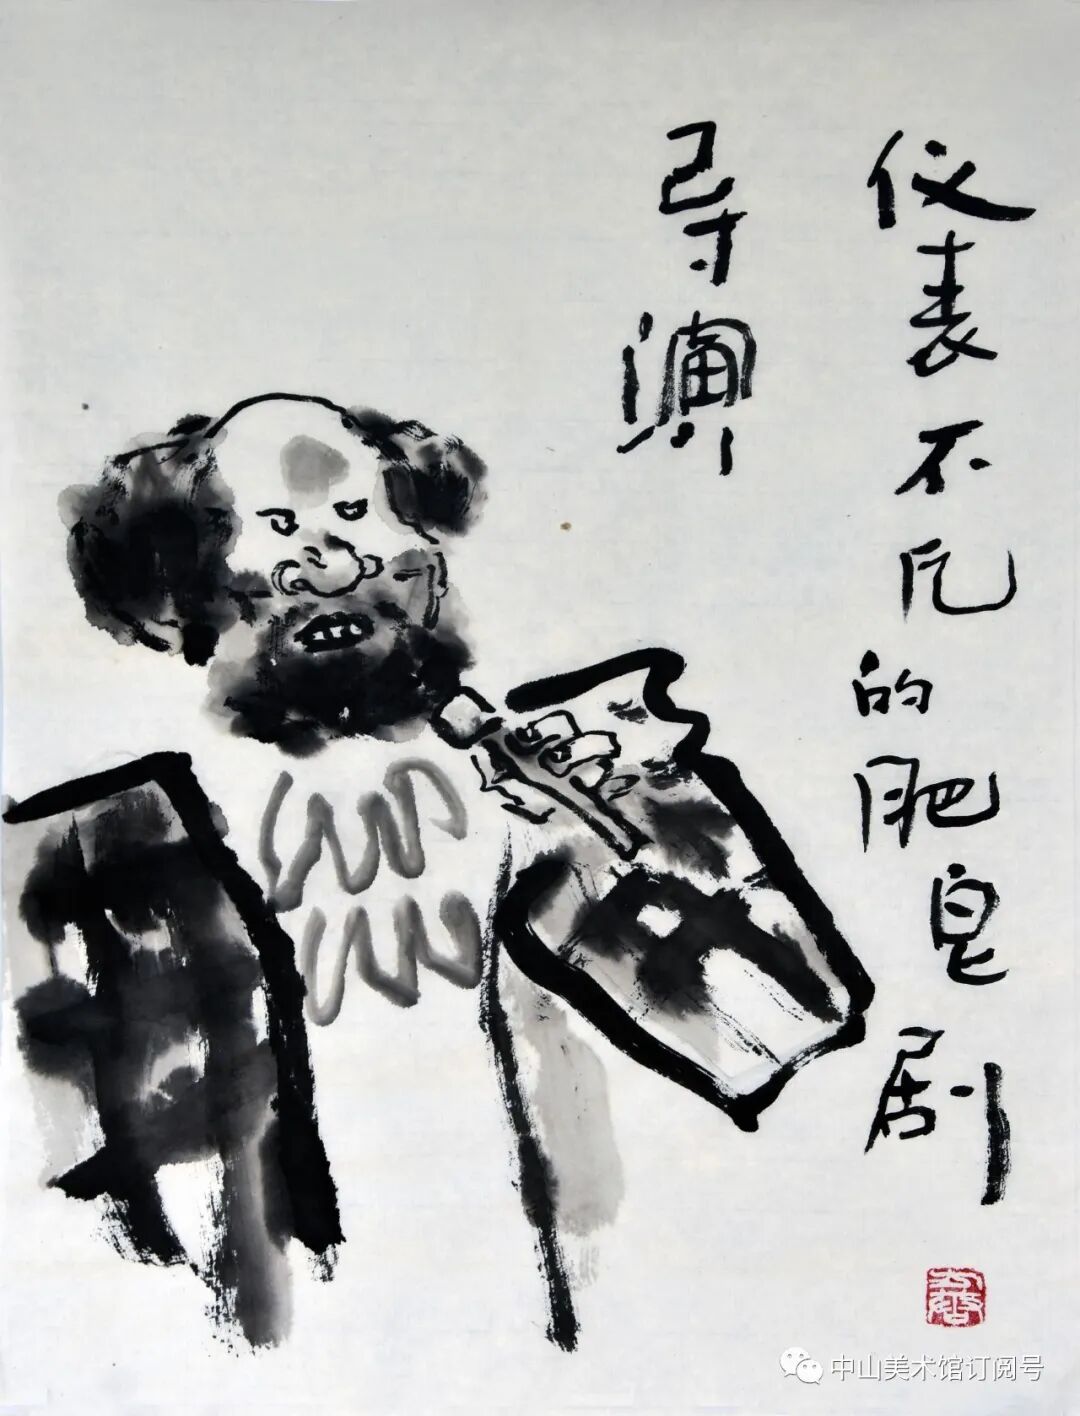 仪表不凡的肥皂剧
导演
中山美术馆订阅号